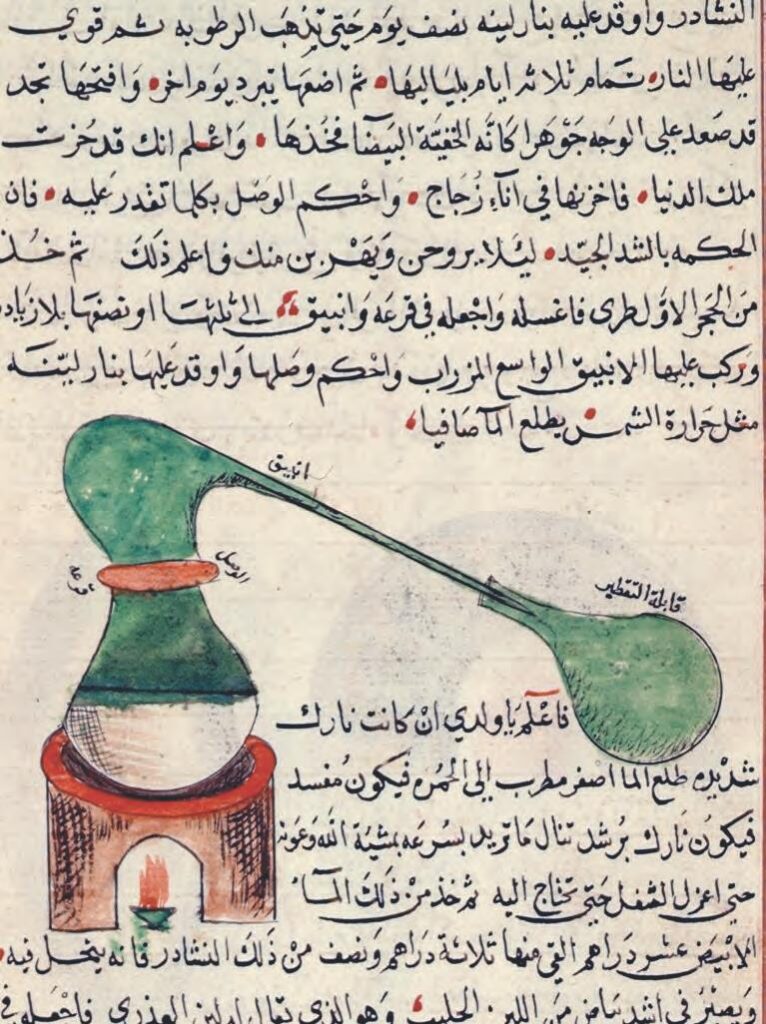 النشادر واوقد عليه بنار لينه نصف يوم حتى تذهب الرطوبه ثم قوي
عليها النار تمام ثلاثه ايام بلياليها ثم اضعها تبرد يوم اخر وافتحها تجد
قد صعد على الوجه جوهرا كانه البيضا فخذها واعلم انك قد حزت
ملك الدنيا فاخزنها في اناء زجاج واحكم الوصل بكلما تقدر عليه فان
الحكمه بالشد الجيد ليئلا يروحن ويهربن منك فاعلم ذلك ثم خذ
من الحجر الاول طرى فاغسله واجعله في قرعه وانبيق الى ثلثها او نصفها بلا زياد
وركب عليها الانبيق الواسع المزراب واحكم وصلها واوقد عليها بنار لينه
مثل حرارة الشمس يطلع الما صافيا
انبيق
الوصل
قرعه
قابلة التقطير
فاعلم يا ولدي ان كانت نارك
شديده طلع الما اصفر مطرب الى الحمره فيكون مفسد
فيكون نارك برشد تنال ما تريد بسرعه بمشية الله وعونه
حتى اعزل الثفل حتى تحتاج اليه ثم خذ من ذلك الماء
الابيض عشر دراهم القي منها ثلاثة دراهم ونصف من ذلك النشادر فانه ينحل فيه
ويصير في اشد بياض من اللبن الحليب وهو الذي يقال له لبن العذرى فاجعله في